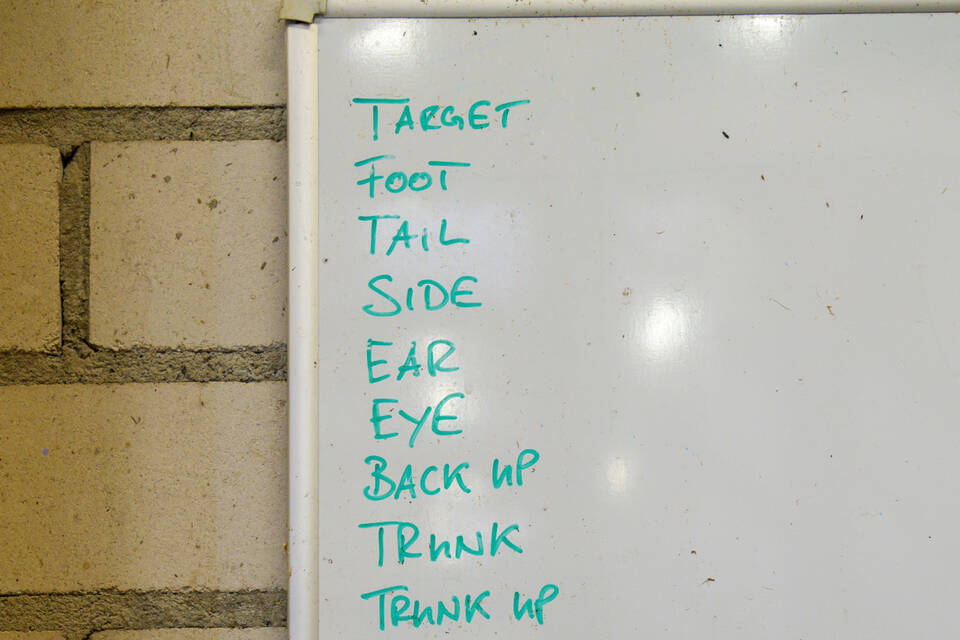 TARGET
FOOT
TAIL
SIDE
EAR
EYE
BACK UP
TRUNK
TRUNK UP